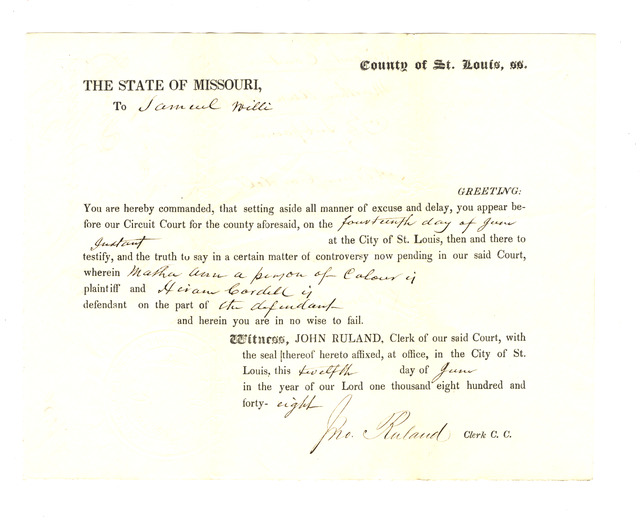 County of St. Louis, ss.
THE STATE OF MISSOURI,
To Samuel Willi
GREETING:
You are hereby commanded, that setting aside all manner of excuse and delay, you appear be-
fore our Circuit Court for the county aforesaid, on the fourteenth day of June
Instant at the City of St. Louis, then and there to
testify, and the truth to say in a certain matter of controversy now pending in our said Court,
wherein Martha Ann a person of Colour is
plaintiff and Hiram Cordell is
defendant on the part of the defendant
and herein you are in no wise to fail.
Witness, JOHN RULAND, Clerk of our said Court, with
the seal thereof hereto affixed, at office, in the City of St.
Louis, this twelfth day of June
in the year of our Lord one thousand eight hundred and
forty- eight
Jno. Ruland Clerk C. C.